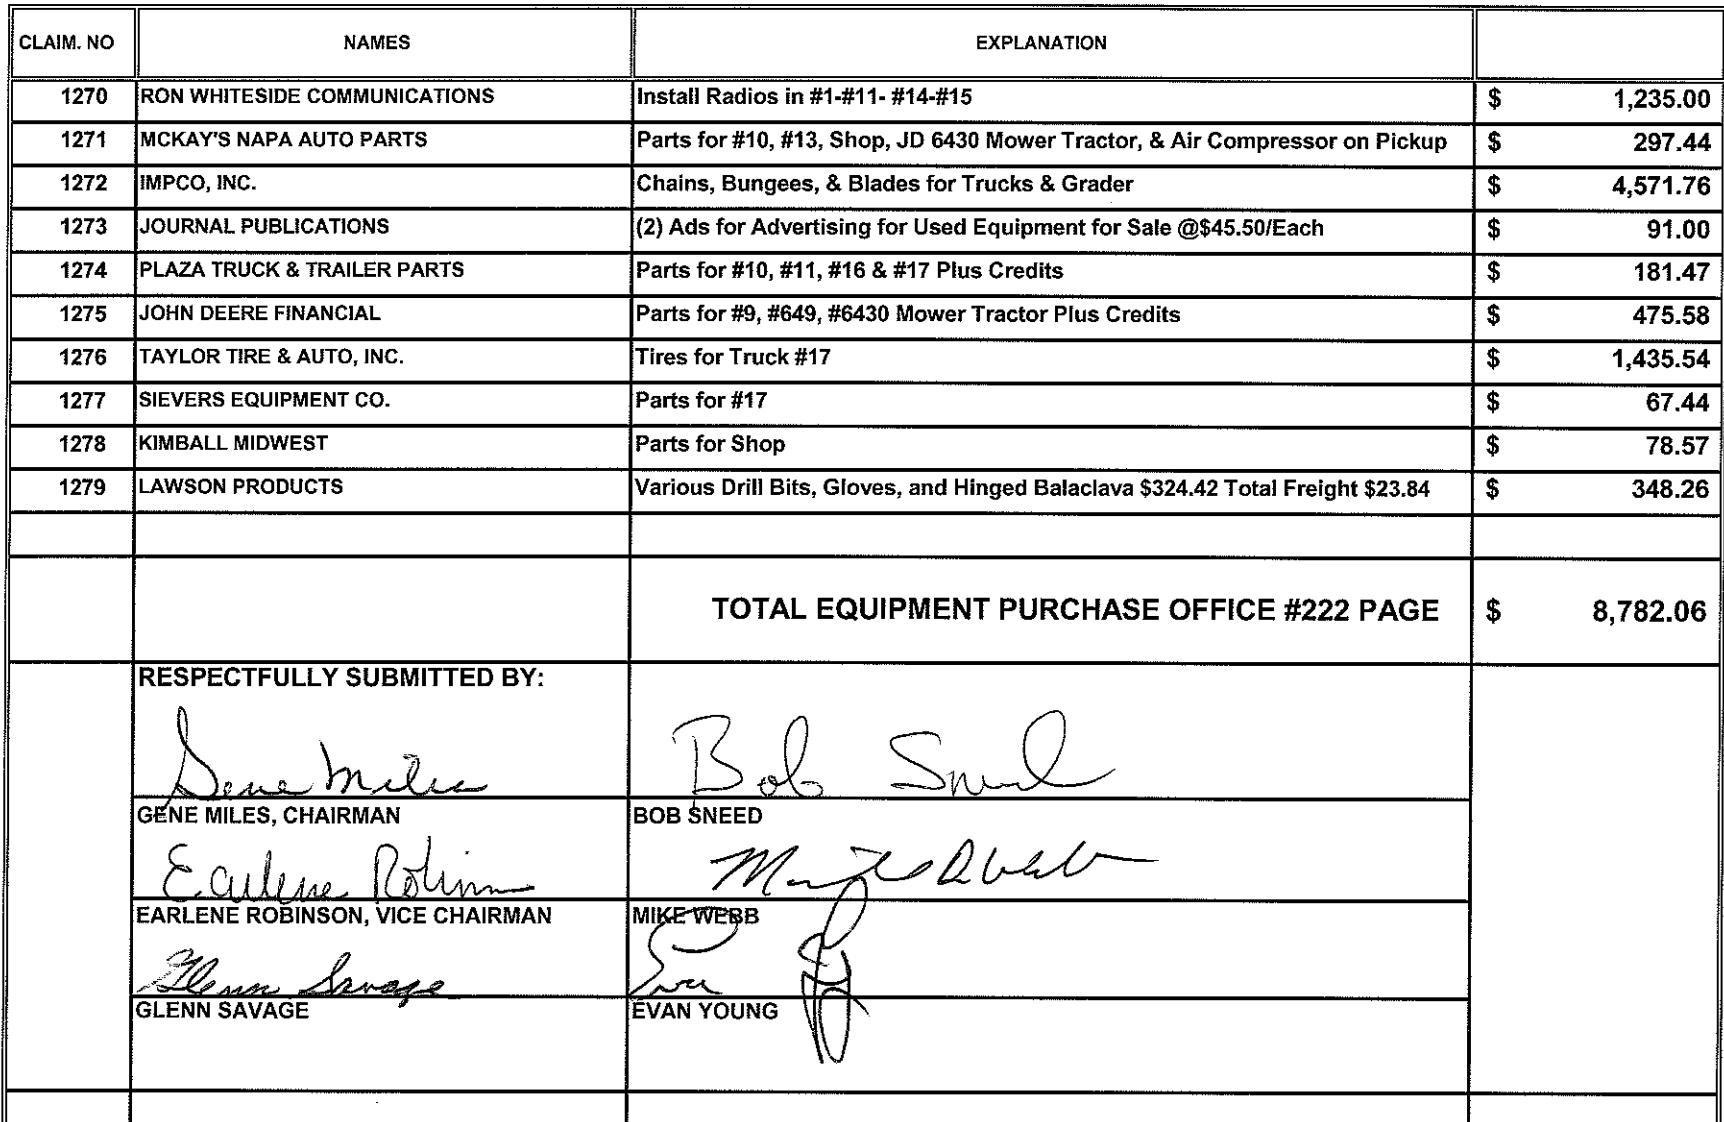 CLAIM. NO NAMES EXPLANATION
1270 RON WHITESIDE COMMUNICATIONS Install Radios in #1-#11- #14-#15 $ 1,235.00
1271 MCKAY'S NAPA AUTO PARTS Parts for #10, #13, Shop, JD 6430 Mower Tractor, & Air Compressor on Pickup $ 297.44
1272 IMPCO, INC. Chains, Bungees, & Blades for Trucks & Grader $ 4,571.76
1273 JOURNAL PUBLICATIONS (2) Ads for Advertising for Used Equipment for Sale @$45.50/Each $ 91.00
1274 PLAZA TRUCK & TRAILER PARTS Parts for #10, #11, #16 & #17 Plus Credits $ 181.47
1275 JOHN DEERE FINANCIAL Parts for #9, #649, #6430 Mower Tractor Plus Credits $ 475.58
1276 TAYLOR TIRE & AUTO, INC. Tires for Truck #17 $ 1,435.54
1277 SIEVERS EQUIPMENT CO. Parts for #17 $ 67.44
1278 KIMBALL MIDWEST Parts for Shop $ 78.57
1279 LAWSON PRODUCTS Various Drill Bits, Gloves, and Hinged Balaclava $324.42 Total Freight $23.84 $ 348.26
TOTAL EQUIPMENT PURCHASE OFFICE #222 PAGE $ 8,782.06
RESPECTFULLY SUBMITTED BY:
Gene Miles Bob Sneed
GENE MILES, CHAIRMAN BOB SNEED
Earlene Robinson Webb
EARLENE ROBINSON, VICE CHAIRMAN MIKE WEBB
Glenn Savage Evan
GLENN SAVAGE EVAN YOUNG